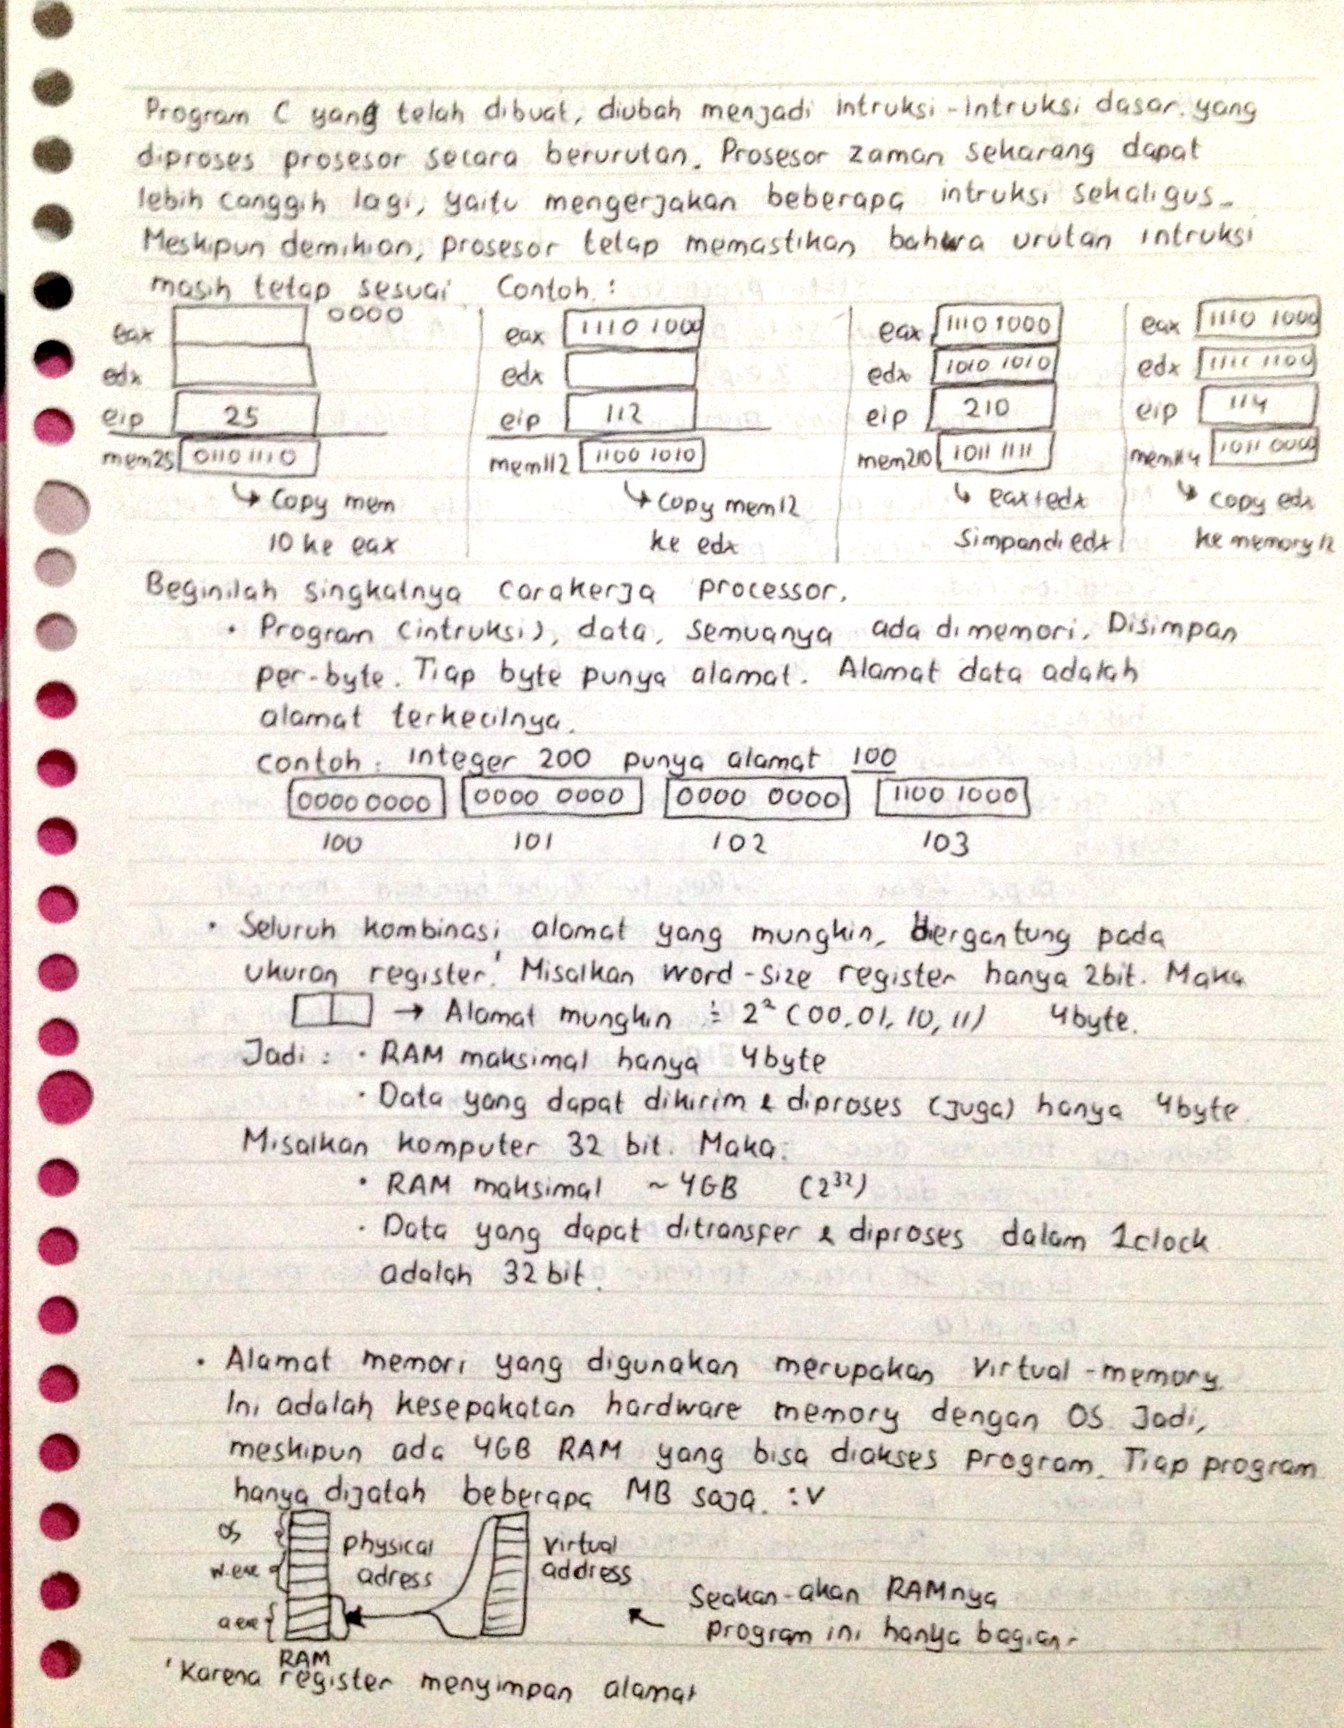 Program C yang telah dibuat, diubah menjadi intruksi-intruksi dasar yang
diproses prosesor secara berurutan. Prosesor zaman sekarang dapat
lebih canggih lagi, yaitu mengerjakan beberapa intruksi sekaligus.
Meskipun demikian, prosesor tetap memastikan bahwa urutan intruksi
masih tetap sesuai. Contoh :
eax 0000
edx
eip 25
mem25 0110 1110
↳ Copy mem
10 ke eax
eax 1110 1000
edx
eip 112
mem112 1100 1010
↳ copy mem12
ke edx
eax 1110 1000
edx 1010 1010
eip 210
mem210 1011 1111
↳ eax+edx
Simpan di edx
eax 1110 1000
edx 1111 1100
eip 114
mem114 1011 0000
↳ copy edx
ke memory 12
Beginilah singkatnya cara kerja processor.
• Program (intruksi), data, semuanya ada di memori. Disimpan
per-byte. Tiap byte punya alamat. Alamat data adalah
alamat terkecilnya.
contoh : Integer 200 punya alamat 100
0000 0000 0000 0000 0000 0000 1100 1000
100 101 102 103
• Seluruh kombinasi alamat yang mungkin, bergantung pada
ukuran register.' Misalkan word-size register hanya 2bit. Maka
→ Alamat mungkin : 2² (00, 01, 10, 11) 4byte.
Jadi : • RAM maksimal hanya 4byte
• Data yang dapat dikirim & diproses (juga) hanya 4byte.
Misalkan komputer 32 bit. Maka:
• RAM maksimal ~ 4GB (2³²)
• Data yang dapat ditransfer & diproses dalam 1clock
adalah 32 bit.
• Alamat memori yang digunakan merupakan virtual-memory.
Ini adalah kesepakatan hardware memory dengan OS. Jadi,
meskipun ada 4GB RAM yang bisa diakses program. Tiap program
hanya dijatah beberapa MB saja. :v
OS
w.exe
a.exe
RAM
physical
adress
virtual
address
Seakan-akan RAMnya
program ini hanya bagian-
'Karena register menyimpan alamat